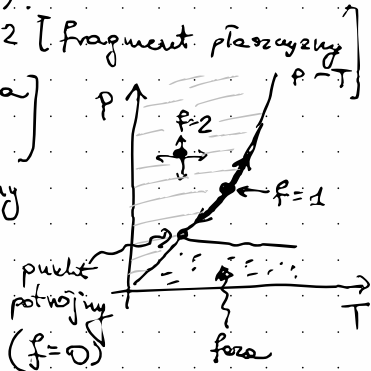 2 [fragment płaszczyzny
P-T]
a]
P
f=2
ny
f=1
punkt
potrójny
(f=0)
faza
T